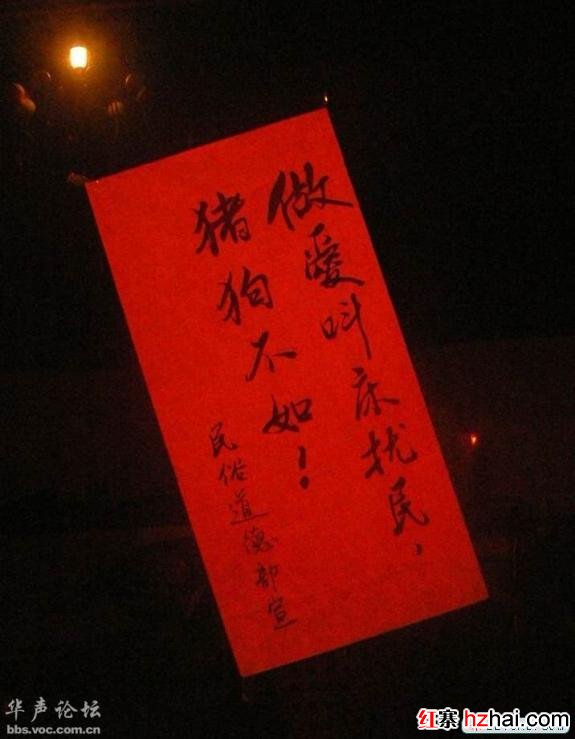 做爱叫床扰民，
猪狗不如！
民俗道德部宣
华声论坛
bbs.voc.com.cn
红寨hzhai.com